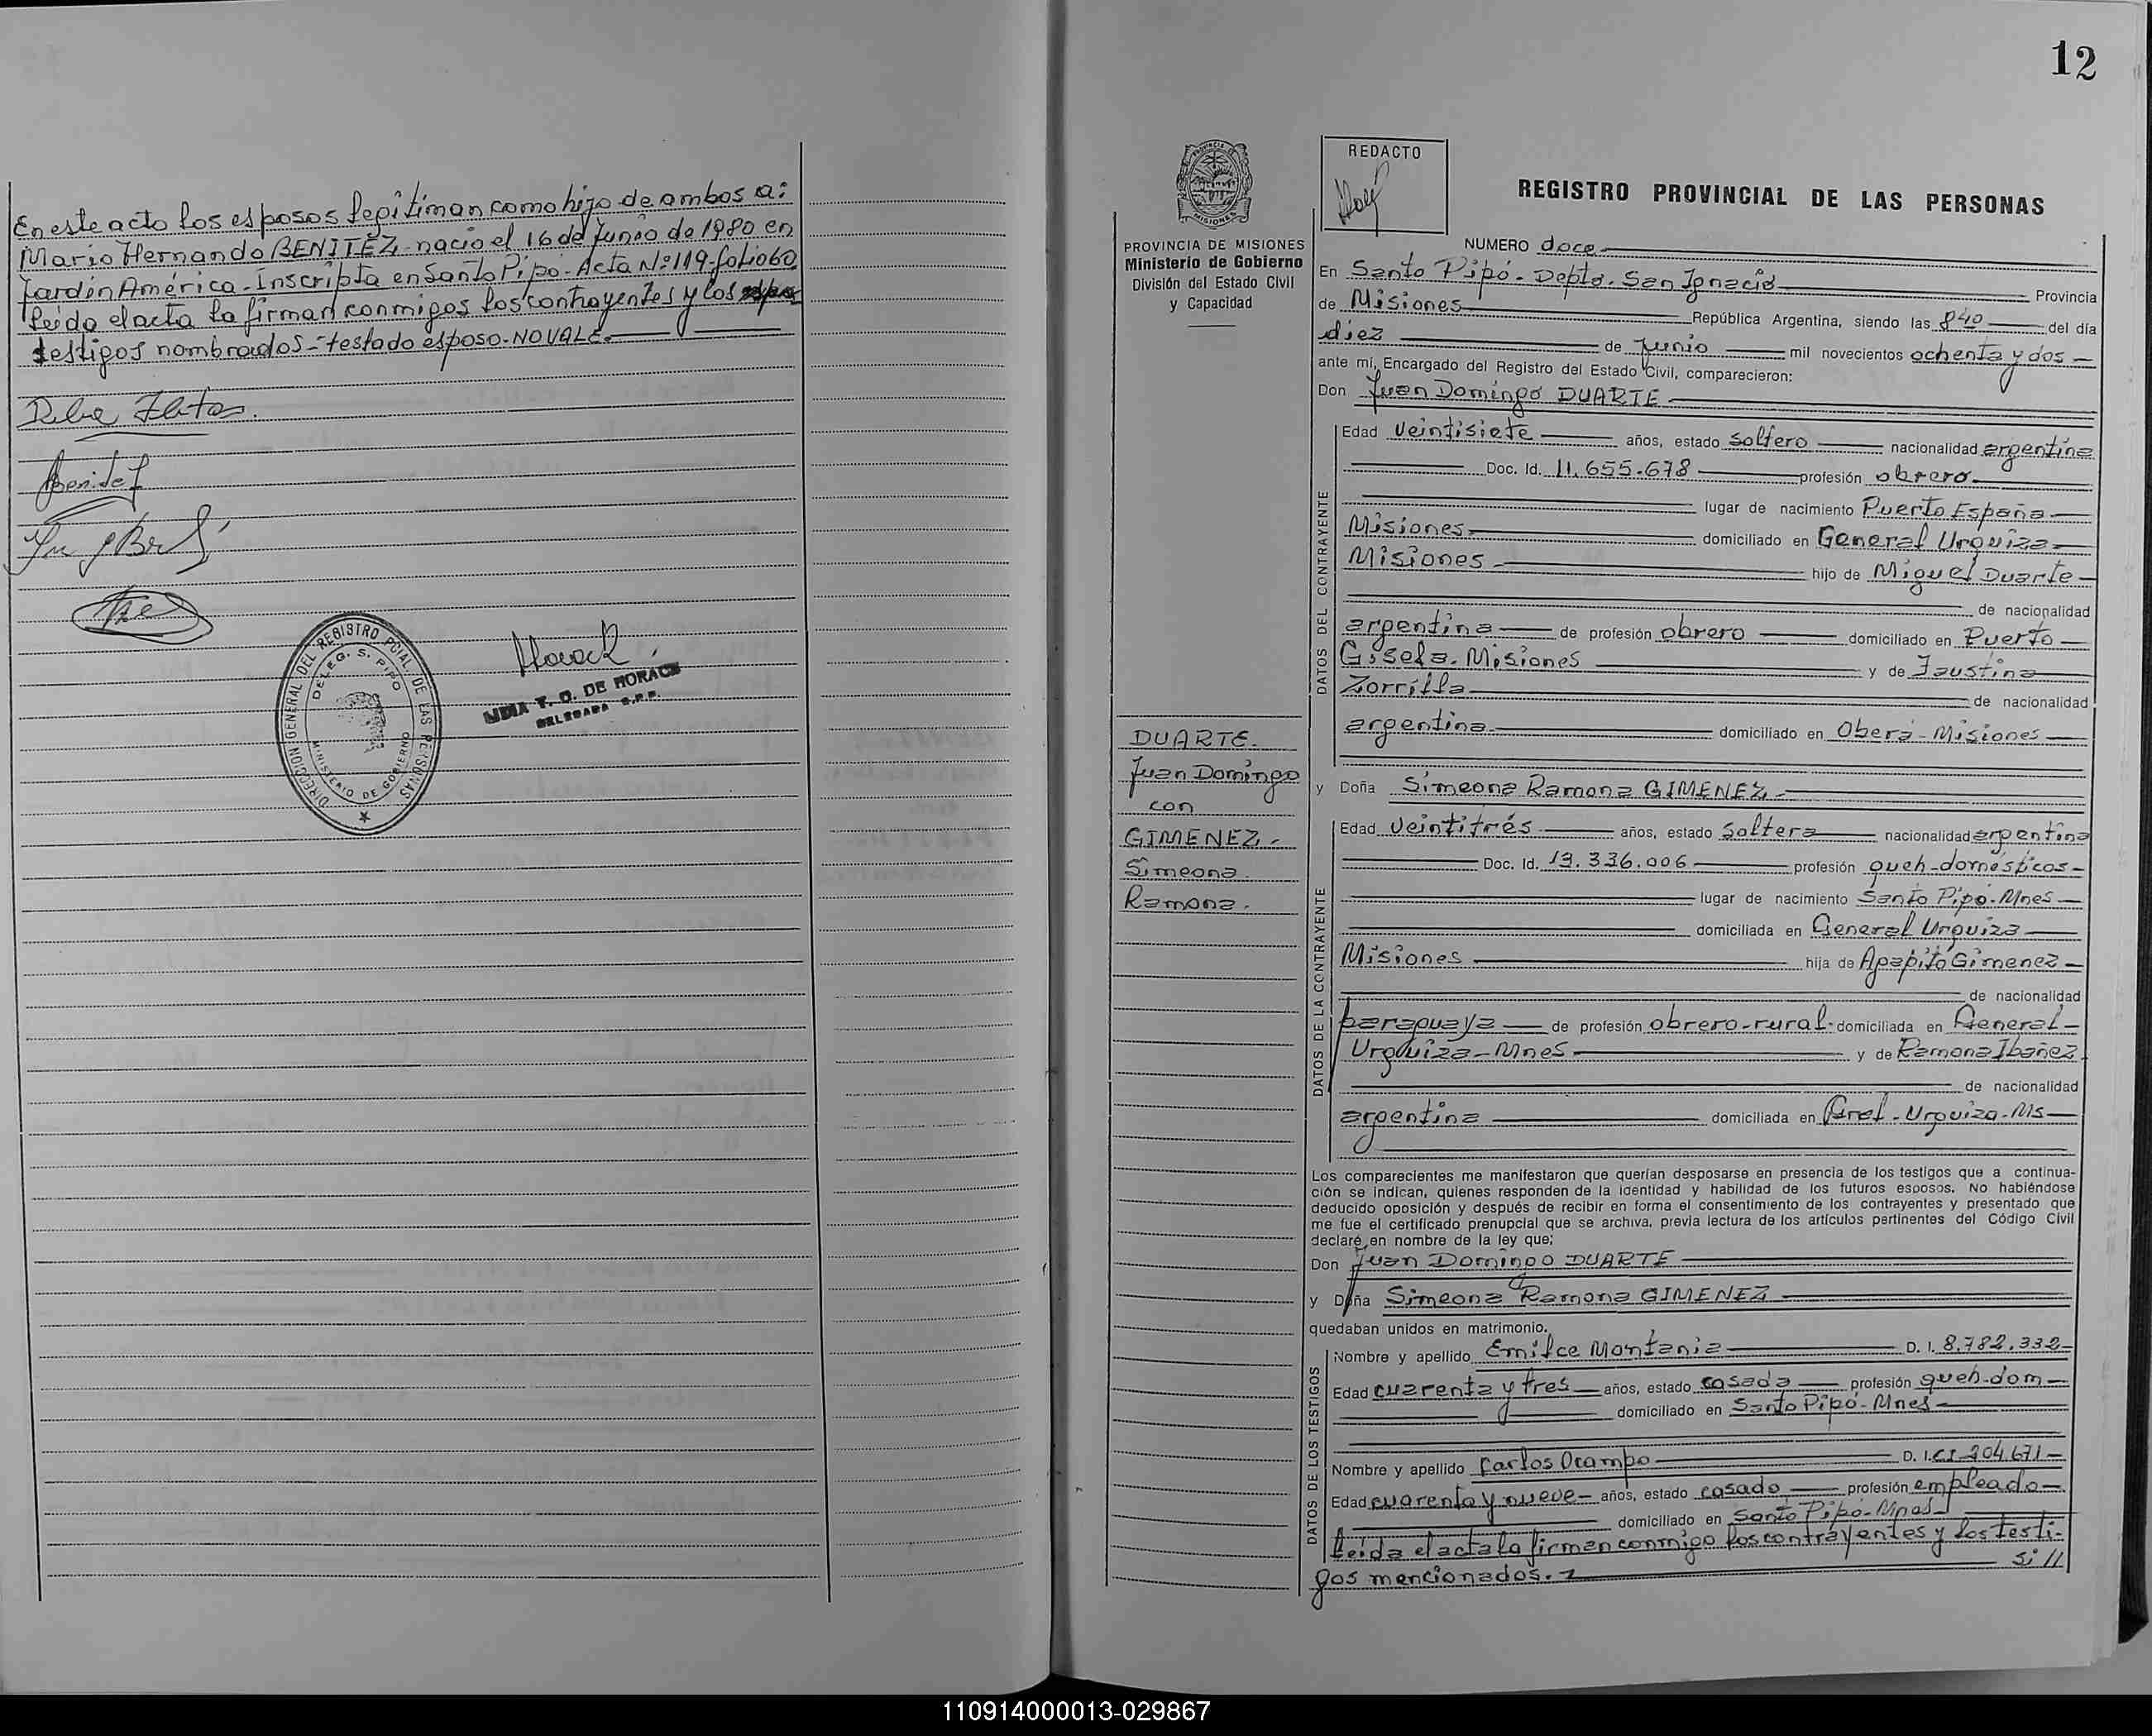 En este acto los esposos legitiman como hijo de ambos a:
Mario Hernando BENITEZ - nacio el 16 de Junio de 1980 en
Jardín América - Inscripta en Santo Pipó - Acta Nº 119 - folio 60
leída el acta la firman conmigos los contrayentes y los
testigos nombrados - testado esposo - NO VALE.
Benitez
DIRECCION GENERAL DEL REGISTRO PCIAL. DE LAS PERSONAS
DELEG. S. PIPO
MINISTERIO DE GOBIERNO
LIDIA T. O. DE HORACK
DELEGADA R.P.P.
12
REDACTO
REGISTRO PROVINCIAL DE LAS PERSONAS
PROVINCIA DE MISIONES
MISIONES
PROVINCIA DE MISIONES
Ministerio de Gobierno
División del Estado Civil
y Capacidad
DUARTE.
Juan Domingo
con
GIMENEZ -
Simeona
Ramona.
NUMERO doce
En Santo Pipó - Depto. San Ignacio Provincia
de Misiones República Argentina, siendo las 840 del día
diez de Junio mil novecientos ochenta y dos
ante mí, Encargado del Registro del Estado Civil, comparecieron:
Don Juan Domingo DUARTE
DATOS DEL CONTRAYENTE
Edad Veintisiete años, estado soltero nacionalidad argentina
Doc. Id. 11.655.678 profesión obrero
lugar de nacimiento Puerto España
Misiones domiciliado en General Urquiza
Misiones hijo de Miguel Duarte
de nacionalidad
argentina de profesión obrero domiciliado en Puerto
Gisela - Misiones y de Faustina
Zorrilla de nacionalidad
argentina domiciliado en Oberá - Misiones
y Doña Simeona Ramona GIMENEZ
DATOS DE LA CONTRAYENTE
Edad Veintitrés años, estado soltera nacionalidad argentina
Doc. Id. 13.336.006 profesión queh-domésticos
lugar de nacimiento Santo Pipó - Mnes
domiciliada en General Urquiza
Misiones hija de Agapito Gimenez
de nacionalidad
paraguaya de profesión obrero-rural domiciliada en General
Urquiza - Mnes y de Ramona Ibañez
de nacionalidad
argentina domiciliada en Gral - Urquiza - Ms
Los comparecientes me manifestaron que querían desposarse en presencia de los testigos que a continua-
ción se indican, quienes responden de la identidad y habilidad de los futuros esposos. No habiéndose
deducido oposición y después de recibir en forma el consentimiento de los contrayentes y presentado que
me fue el certificado prenupcial que se archiva, previa lectura de los artículos pertinentes del Código Civil
declaré en nombre de la ley que:
Don Juan Domingo DUARTE
y Doña Simeona Ramona GIMENEZ
quedaban unidos en matrimonio.
DATOS DE LOS TESTIGOS
Nombre y apellido Emilce Montania D. I. 8.782.332
Edad cuarenta y tres años, estado casada profesión queh-dom
domiciliado en Santo Pipó - Mnes
Nombre y apellido Carlos Ocampo D. I. CI 204.671
Edad cuarenta y nueve años, estado casado profesión empleado
domiciliado en Santo Pipó - Mnes
Leída el acta la firman conmigo los contrayentes y los testi-
gos mencionados. si //
110914000013-029867